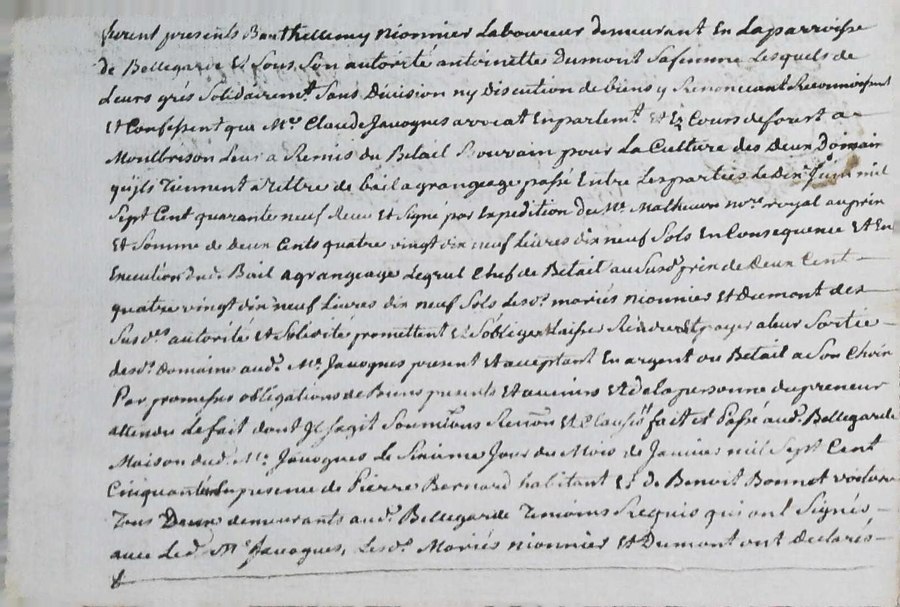 furent presents Barthellemy nionnier Laboureur demeurant En Laparroisse
de Bellegarde Et Sous Son autorité antoinette Dumont Safemme Lesquels de
Leurs grés Solidairemt. Sans Division ny Discution de biens y Renonceant Reconnoissent
Et Confessent que Mr. Claude Jacognes avocat Enparlemt. Et Ez Cours deforest a
Montbrison Leur a Remis du Betail Bouvain pour La Culture des Deux Domain
quils Tiennent a Tittre de bail a grangeage passé Entre Lesparties Le Dix Juin mil
Sept Cent quarante neuf Receu Et Signé par Expedition du Me. Mathevon nore. royal auprix
Et Somme de deux Cents quatre vingt dix neuf Livres dix neuf Sols En Consequence Et En
Execution dud. Bail agrangeage Lequel Chef de Betail au Susd. prix de Deux Cent
quatre vingt dix neuf Livres dix neuf Sols Lesd. mariés nionnier Et Dumont des
Susdes. autorité Et Solidité promettent Et Sobligent Laisser Rendre Et payer a leur Sortie
desd. domaine aud. Mr. Jacognes present Et acceptant En argent ou Betail a Son Choix
Par promesses obligations de Biens presents Et avenirs Et de la personne du preneur
attendu Le fait dont Il Sagit Soumions Renon Et Clauses fait et Passé aud. Bellegarde
Maison dud. Mr. Jacognes Le Sixieme Jour du Mois de Janvier mil Sept Cent
Cinquante En presence de Pierre Bernard habitant Et de Benoit Bonnet
Tous Deux demeurants aud. Bellegarde Temoins Requis qui ont Signés
avec Led. Mr. Jacognes, Lesd. Mariés nionnier Et Dumont ont declarés